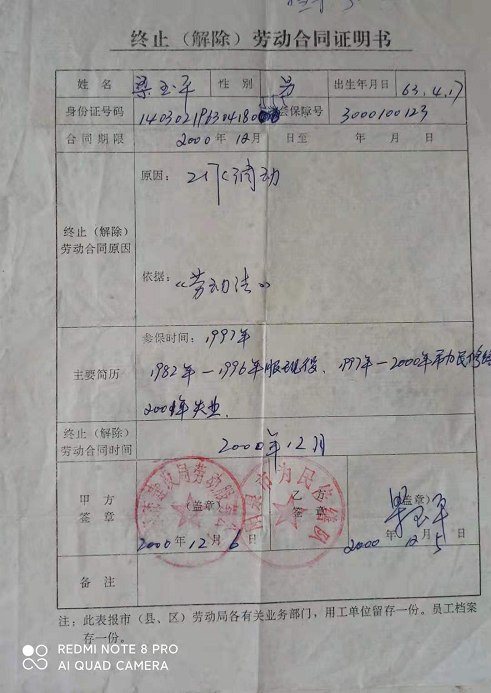 终止（解除）劳动合同证明书
姓 名 梁玉平 性 别 男 出生年月日 63.4.17
身份证号码 会保障号 3000100123
合同期限 2000 年 12 月 日至 年 月 日
原因： 工作调动
终止（解除）
劳动合同原因
依据：《劳动法》
参保时间：1997年
主要简历 1982年—1996年服现役、1997年—2000年市力民修缮
失业.
终止（解除）
劳动合同时间 2000年12月
甲 方
签 章
（盖章）
2000 年 12 月 6 日
乙 方
签 章
（盖章）
梁玉平
2000 年 12 月 5 日
备 注
注：此表报市（县、区）劳动局各有关业务部门，用工单位留存一份。员工档案
存一份。
REDMI NOTE 8 PRO
AI QUAD CAMERA